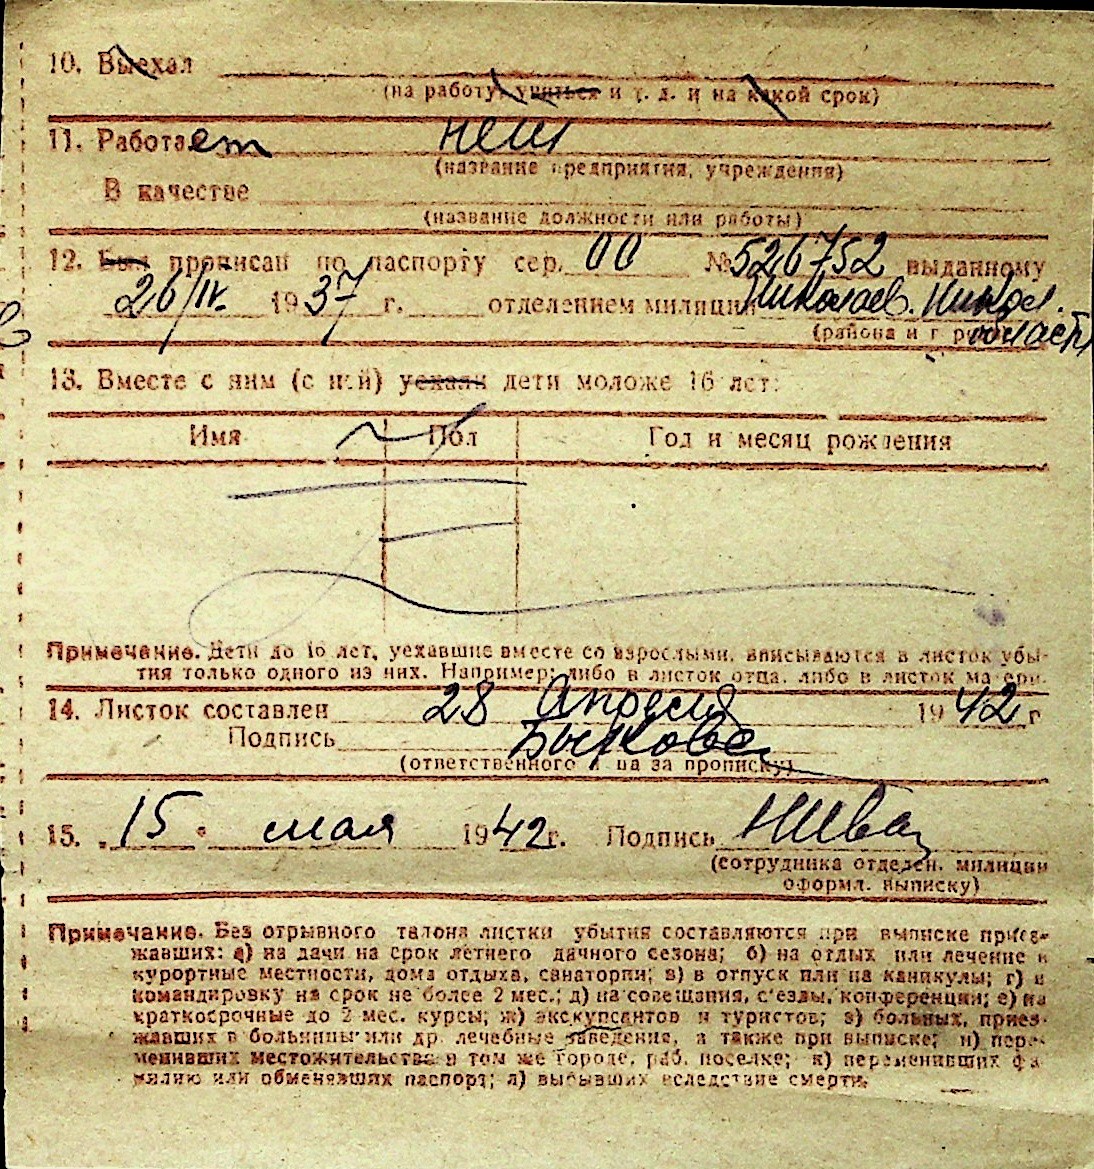 10. Выехал
(на работу, учиться и т. д. и на какой срок)
11. Работает нет
(название предприятия, учреждения)
В качестве
(название должности или работы)
12. Был прописан по паспорту сер. 00 № 526752 выданному
26/IV. 1937 г. отделением милиции Николаев.
(района и г области
13. Вместе с ним (с ней) уехали дети моложе 16 лет:
Имя Пол Год и месяц рождения
Примечание. Дети до 16 лет, уехавшие вместе со взрослыми, вписываются в листок убы-
тия только одного из них. Например: либо в листок отца, либо в листок матери.
14. Листок составлен 28 Апреля 1942 г
Подпись Быкова
(ответственного лица за прописку)
15. 15. мая 1942 г. Подпись
(сотрудника отделен. милиции
оформл. выписку)
Примечание. Без отрывного талона листки убытия составляются при выписке приез-
жавших: а) на дачи на срок летнего дачного сезона; б) на отдых или лечение в
курортные местности, дома отдыха, санатории; в) в отпуск или на каникулы; г) в
командировку на срок не более 2 мес.; д) на совещания, с'езды, конференции; е) на
краткосрочные до 2 мес. курсы; ж) экскурсантов и туристов; з) больных, приез-
жавших в больницы или др. лечебные заведение, а также при выписке; и) пере-
менивших местожительства в том же городе, раб. поселке; к) переменивших фа-
милию или обменявших паспорт; л) выбывших вследствие смерти.